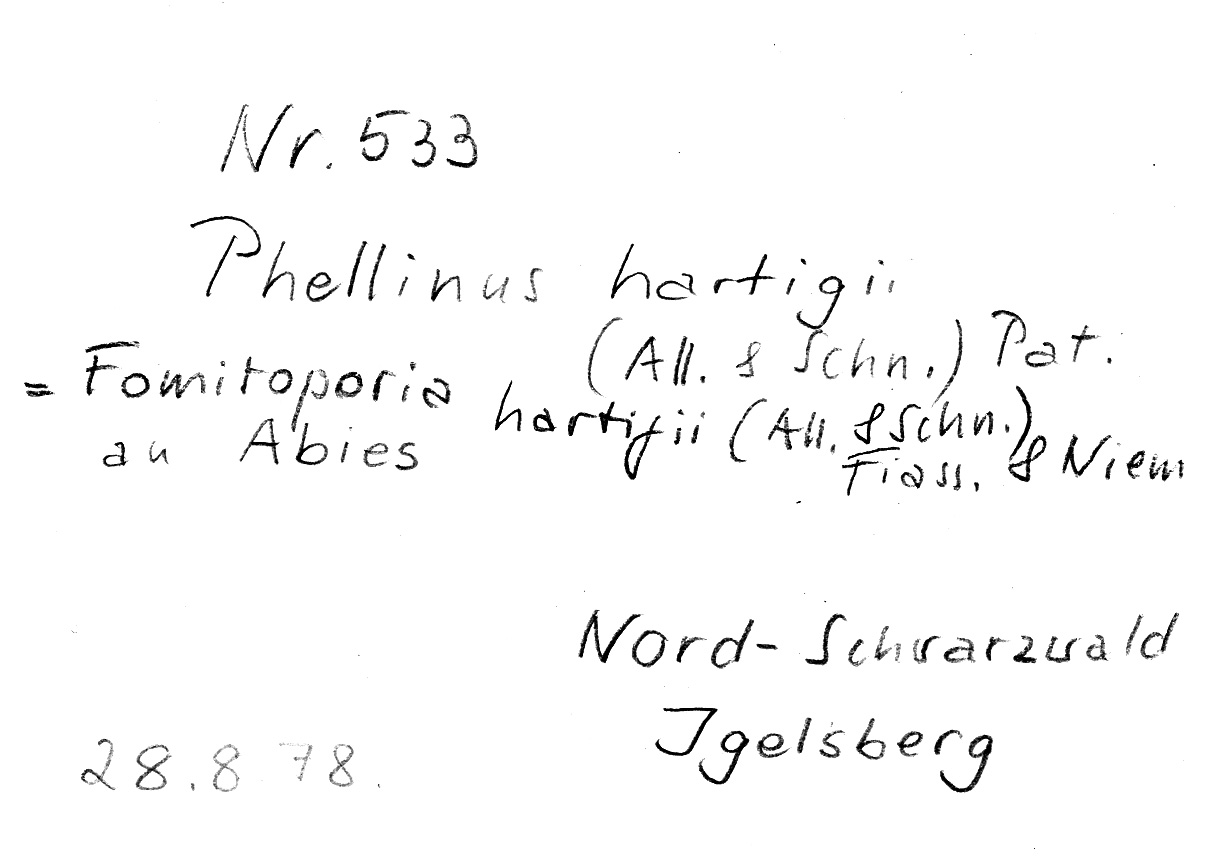 Nr. 533
Phellinus hartigii
(All. & Schn.) Pat.
= Fomitoporia hartigii (All. & Schn.)
Fiass. & Niem
an Abies
Nord-Schwarzwald
Igelsberg
28.8 78.